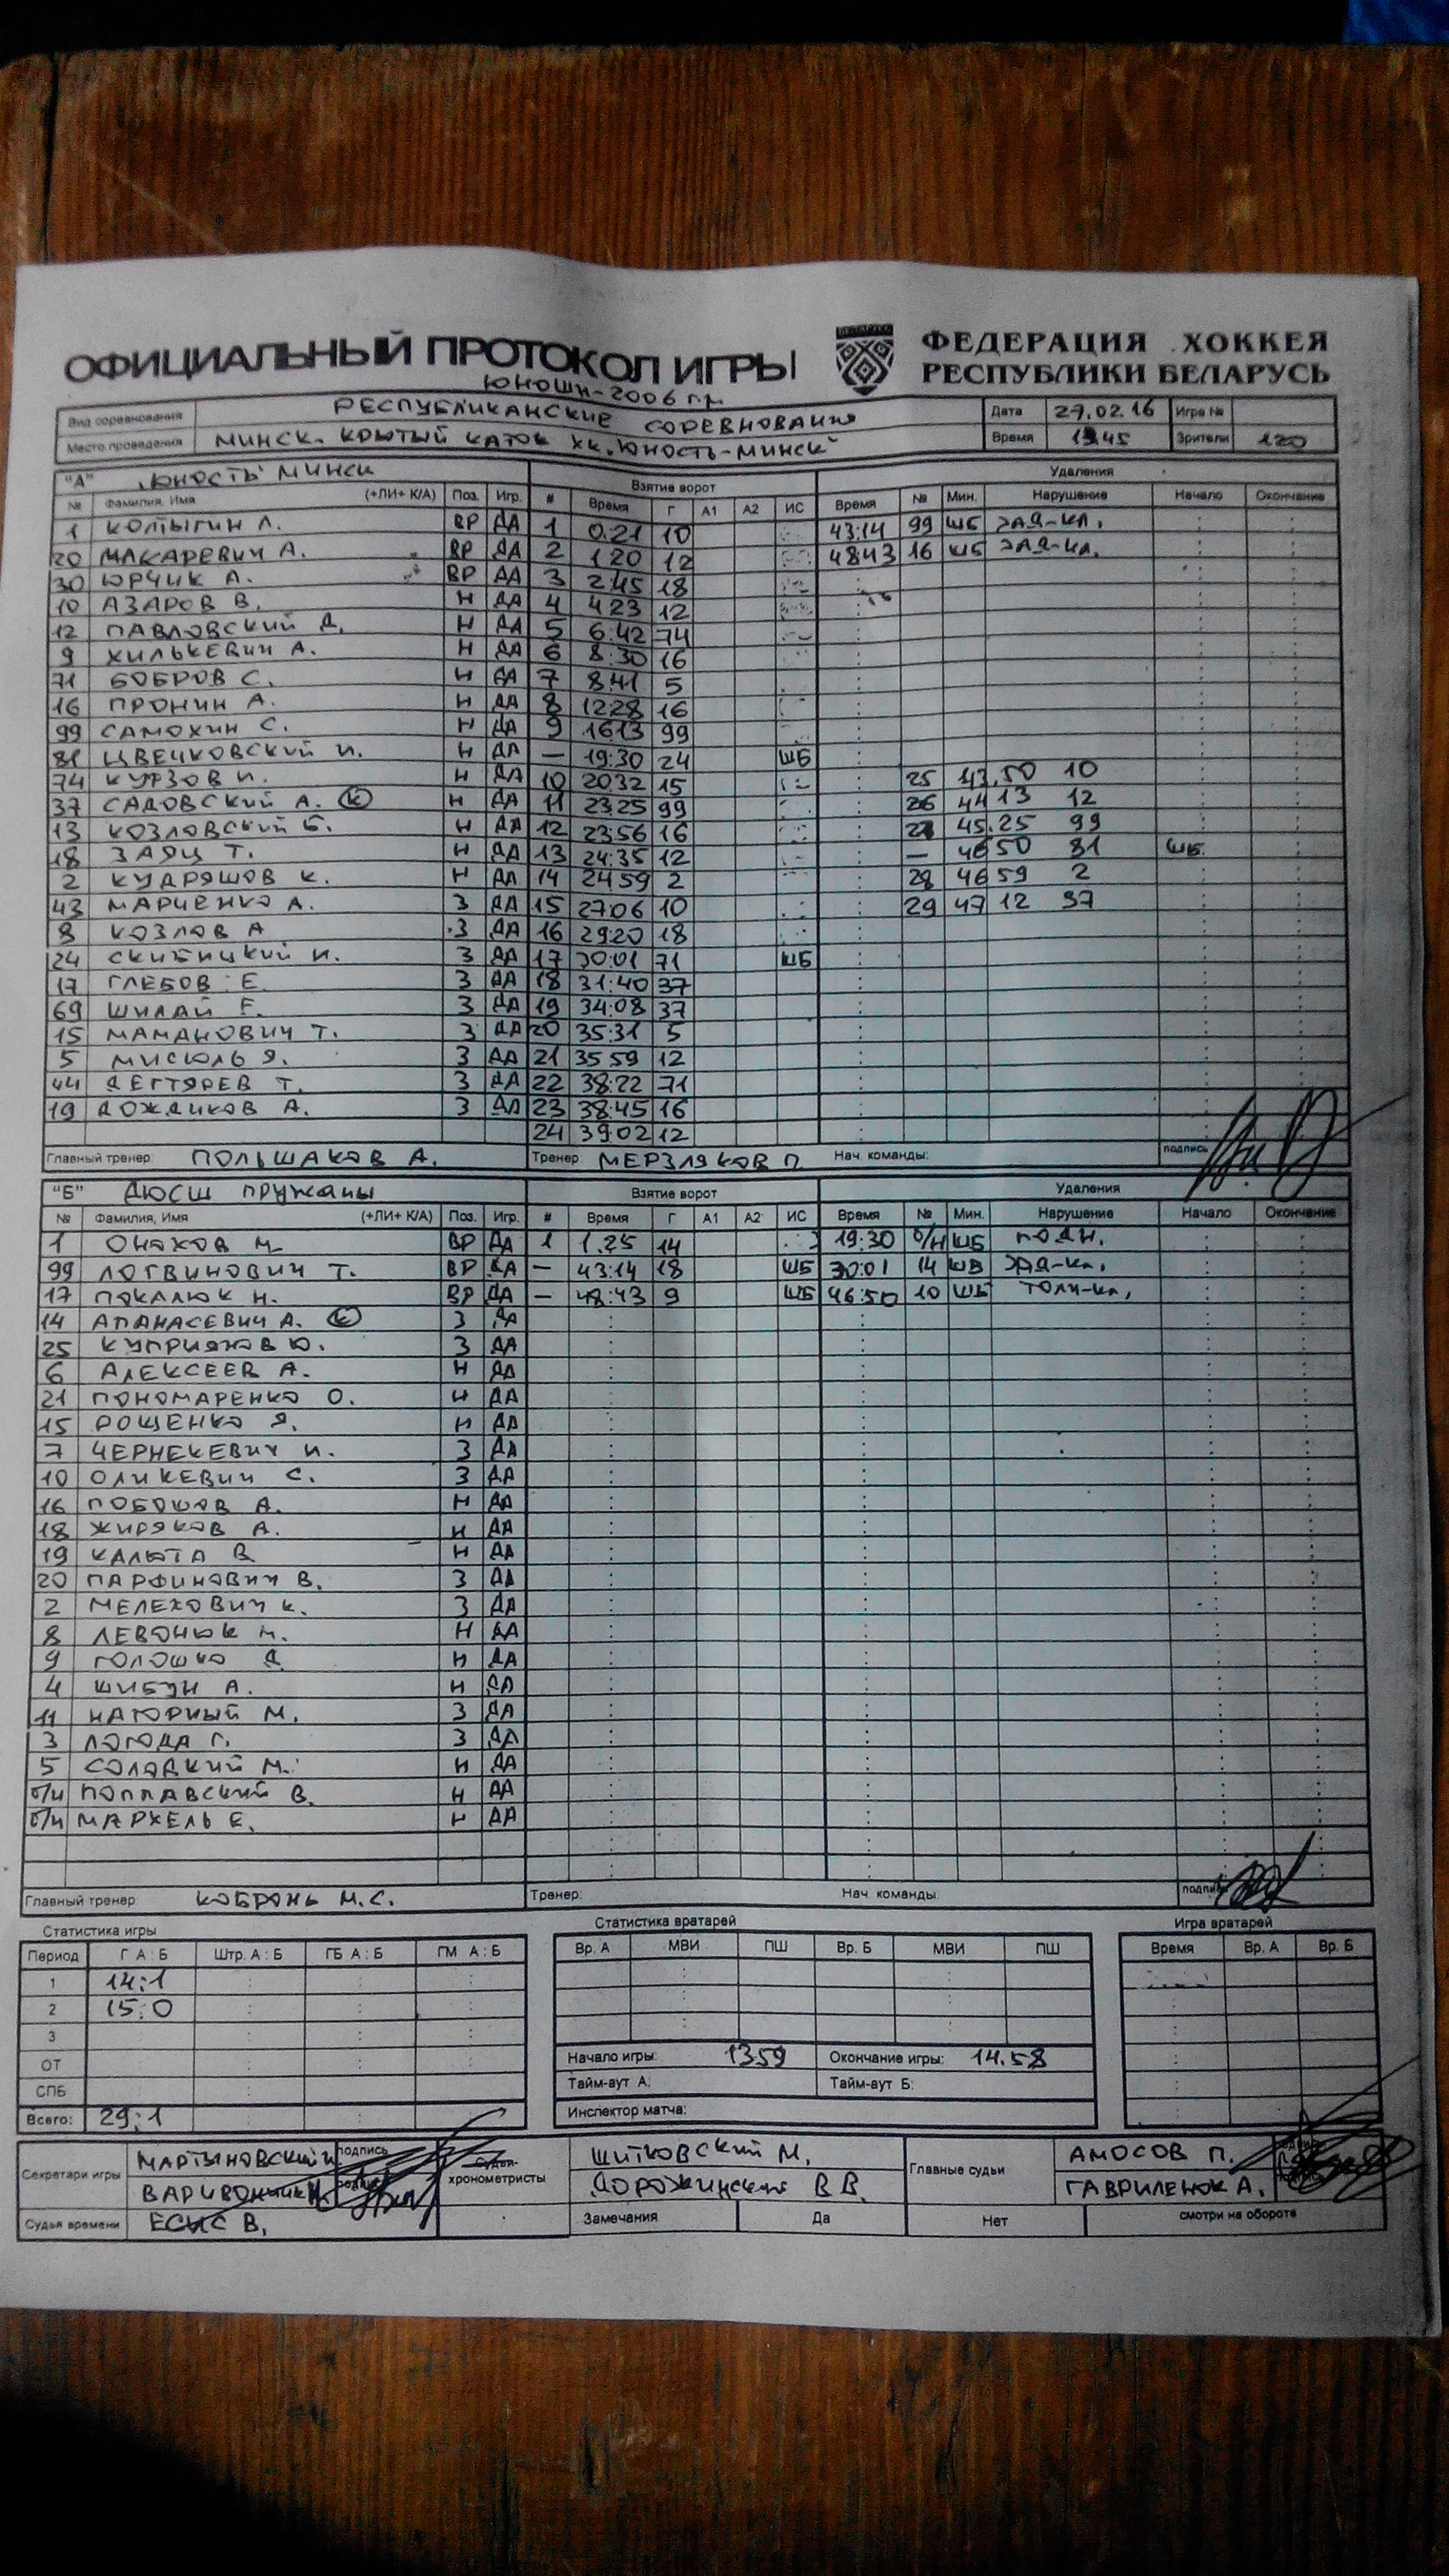 ОФИЦИАЛЬНЫЙ ПРОТОКОЛ ИГРЫ
ФЕДЕРАЦИЯ ХОККЕЯ
РЕСПУБЛИКИ БЕЛАРУСЬ
ЮНОШИ-2006 г.р.
Вид соревнования РЕСПУБЛИКАНСКИЕ СОРЕВНОВАНИЯ Дата 27.02.16 Игра №
Место проведения МИНСК. КРЫТЫЙ КАТОК ХК "ЮНОСТЬ-МИНСК" Время 45 Зрители 120
"А" "ЮНОСТЬ" МИНСК Взятие ворот Удаления
№ Фамилия, Имя (+ЛИ+ К/А) Поз. Игр. # Время Г А1 А2 ИС Время № Мин. Нарушение Начало Окончание
1 КОЛТЫГИН Л. ВР ДА 1 0:21 10 43:14 99 ШБ ЗАД-КЛ.
20 МАКАРЕВИЧ А. ВР ДА 2 1:20 12 48:43 16 ШБ ЗАД-КЛ.
30 ЮРЧИК А. ВР ДА 3 2:45 18
10 АЗАРОВ В. Н ДА 4 4:23 12
12 ПАВЛОВСКИЙ Д. Н ДА 5 6:42 74
9 ХИЛЬКЕВИЧ А. Н ДА 6 8:30 16
71 БОБРОВ С. Н ДА 7 8:41 5
16 ПРОНИН А. Н ДА 8 12:28 16
99 САМОХИН С. Н ДА 9 16:13 99
81 ЦВЕЧКОВСКИЙ И. Н ДА — 19:30 24 ШБ
74 КУРЗОВ И. Н ДА 10 20:32 15 25 43.50 10
37 САДОВСКИЙ А. (К) Н ДА 11 23:25 99 26 44 13 12
13 КОЗЛОВСКИЙ Б. Н ДА 12 23:56 16 27 45.25 99
18 ЗАЯЦ Т. Н ДА 13 24:35 12 — 46 50 81 ШБ
2 КУДРЯШОВ К. Н ДА 14 24:59 2 28 46 59 2
43 МАРЧЕНКО А. З ДА 15 27:06 10 29 47 12 37
8 КОЗЛОВ А З ДА 16 29:20 18
24 СКИБИЦКИЙ И. З ДА 17 30:01 71 ШБ
17 ГЛЕБОВ Е. З ДА 18 31:40 37
69 ШИЛАЙ Е. З ДА 19 34:08 37
15 МАМАНОВИЧ Т. З ДА 20 35:31 5
5 МИСЮЛЬ Я. З ДА 21 35:59 12
44 ДЕГТЯРЕВ Т. З ДА 22 38:22 71
19 ДОЖДИКОВ А. З ДА 23 38:45 16
24 39:02 12
Главный тренер: ПОЛЬШАКОВ А. Тренер: МЕРЗЛЯКОВ П. Нач. команды: подпись
"Б" ДЮСШ ПРУЖАНЫ Взятие ворот Удаления
№ Фамилия, Имя (+ЛИ+ К/А) Поз. Игр. # Время Г А1 А2 ИС Время № Мин. Нарушение Начало Окончание
1 ОНАХОВ М. ВР ДА 1 1.25 14 19:30 б/н ШБ ПОДН.
99 ЛОГВИНОВИЧ Т. ВР ДА — 43:14 18 ШБ 30:01 14 ШБ ЗАД-КЛ.
17 ПОКАЛЮК Н. ВР ДА — 48:43 9 ШБ 46:50 10 ШБ ТОЛЧ-КЛ.
14 АПАНАСЕВИЧ А. (К) З ДА
25 КУПРИЯНОВ Ю. З ДА
6 АЛЕКСЕЕВ А. Н ДА
21 ПОНОМАРЕНКО О. Н ДА
15 РОЩЕНКО Я. Н ДА
7 ЧЕРНЕКЕВИЧ И. З ДА
10 ОЛИКЕВИЧ С. З ДА
16 ПОБОШОВ А. Н ДА
18 ЖИРЯКОВ А. Н ДА
19 КАЛЮТА В Н ДА
20 ПАРФИНОВИЧ В. З ДА
2 МЕЛЕХОВИЧ К. З ДА
8 ЛЕВОНЮК М. Н ДА
9 ГОЛОШКО Д Н ДА
4 ШИБУН А. Н ДА
11 НАГОРНЫЙ М. З ДА
3 ЛОГОДА Г. З ДА
5 СОЛОДКИЙ М. Н ДА
б/н ПОПЛАВСКИЙ В. Н ДА
б/н МАРХЕЛЬ Е. Н ДА
Главный тренер: КОБРОНЬ М.С. Тренер: Нач. команды: подпись
Статистика игры Статистика вратарей Игра вратарей
Период Г А : Б Штр. А : Б ГБ А : Б ГМ А : Б Вр. А МВИ ПШ Вр. Б МВИ ПШ Время Вр. А Вр. Б
1 14:1
2 15:0
3
ОТ Начало игры: 1359 Окончание игры: 14.58
СПБ Тайм-аут А: Тайм-аут Б:
Всего: 29:1 Инспектор матча:
Секретари игры МАРТЫНОВСКИЙ подпись Судьи-хронометристы ШИТКОВСКИЙ М. Главные судьи АМОСОВ П.
ДОРОЖИНСКИЙ В В. ГАВРИЛЕНЮК А.
Судья времени ЕСИС В. Замечания Да Нет смотри на обороте